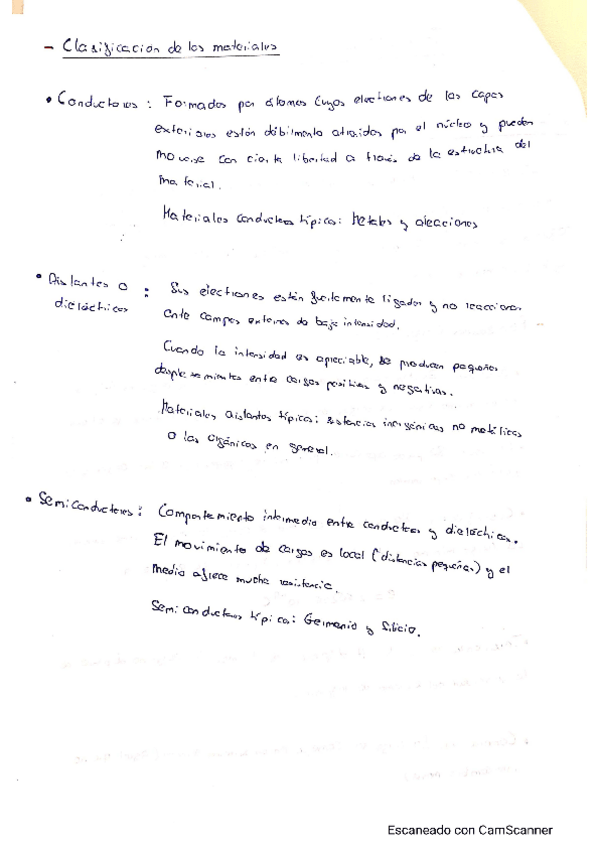 - Clasificacion de los materiales
• Conductores : Formados por átomos cuyos electrones de las capas
exteriores están débilmente atraidos por el núcleo y pueden
moverse con cierta libertad a través de la estructura del
material.
Materiales conductores típicos: Metales y aleaciones
• Aislantes o : Sus electrones están fuertemente ligados y no reaccionan
dieléctricos
ante campos externos de baja intensidad.
Cuando la intensidad es apreciable, se producen pequeños
desplazamientos entre cargas positivas y negativas.
Materiales aislantes típicos: sustancias inorgánicas no metálicas
o las orgánicas en general.
• Semiconductores : Comportamiento intermedio entre conductores y dieléctricos.
El movimiento de cargas es local (distancias pequeñas) y el
medio ofrece mucha resistencia.
Semiconductores típicos: Germanio y Silicio.
Escaneado con CamScanner